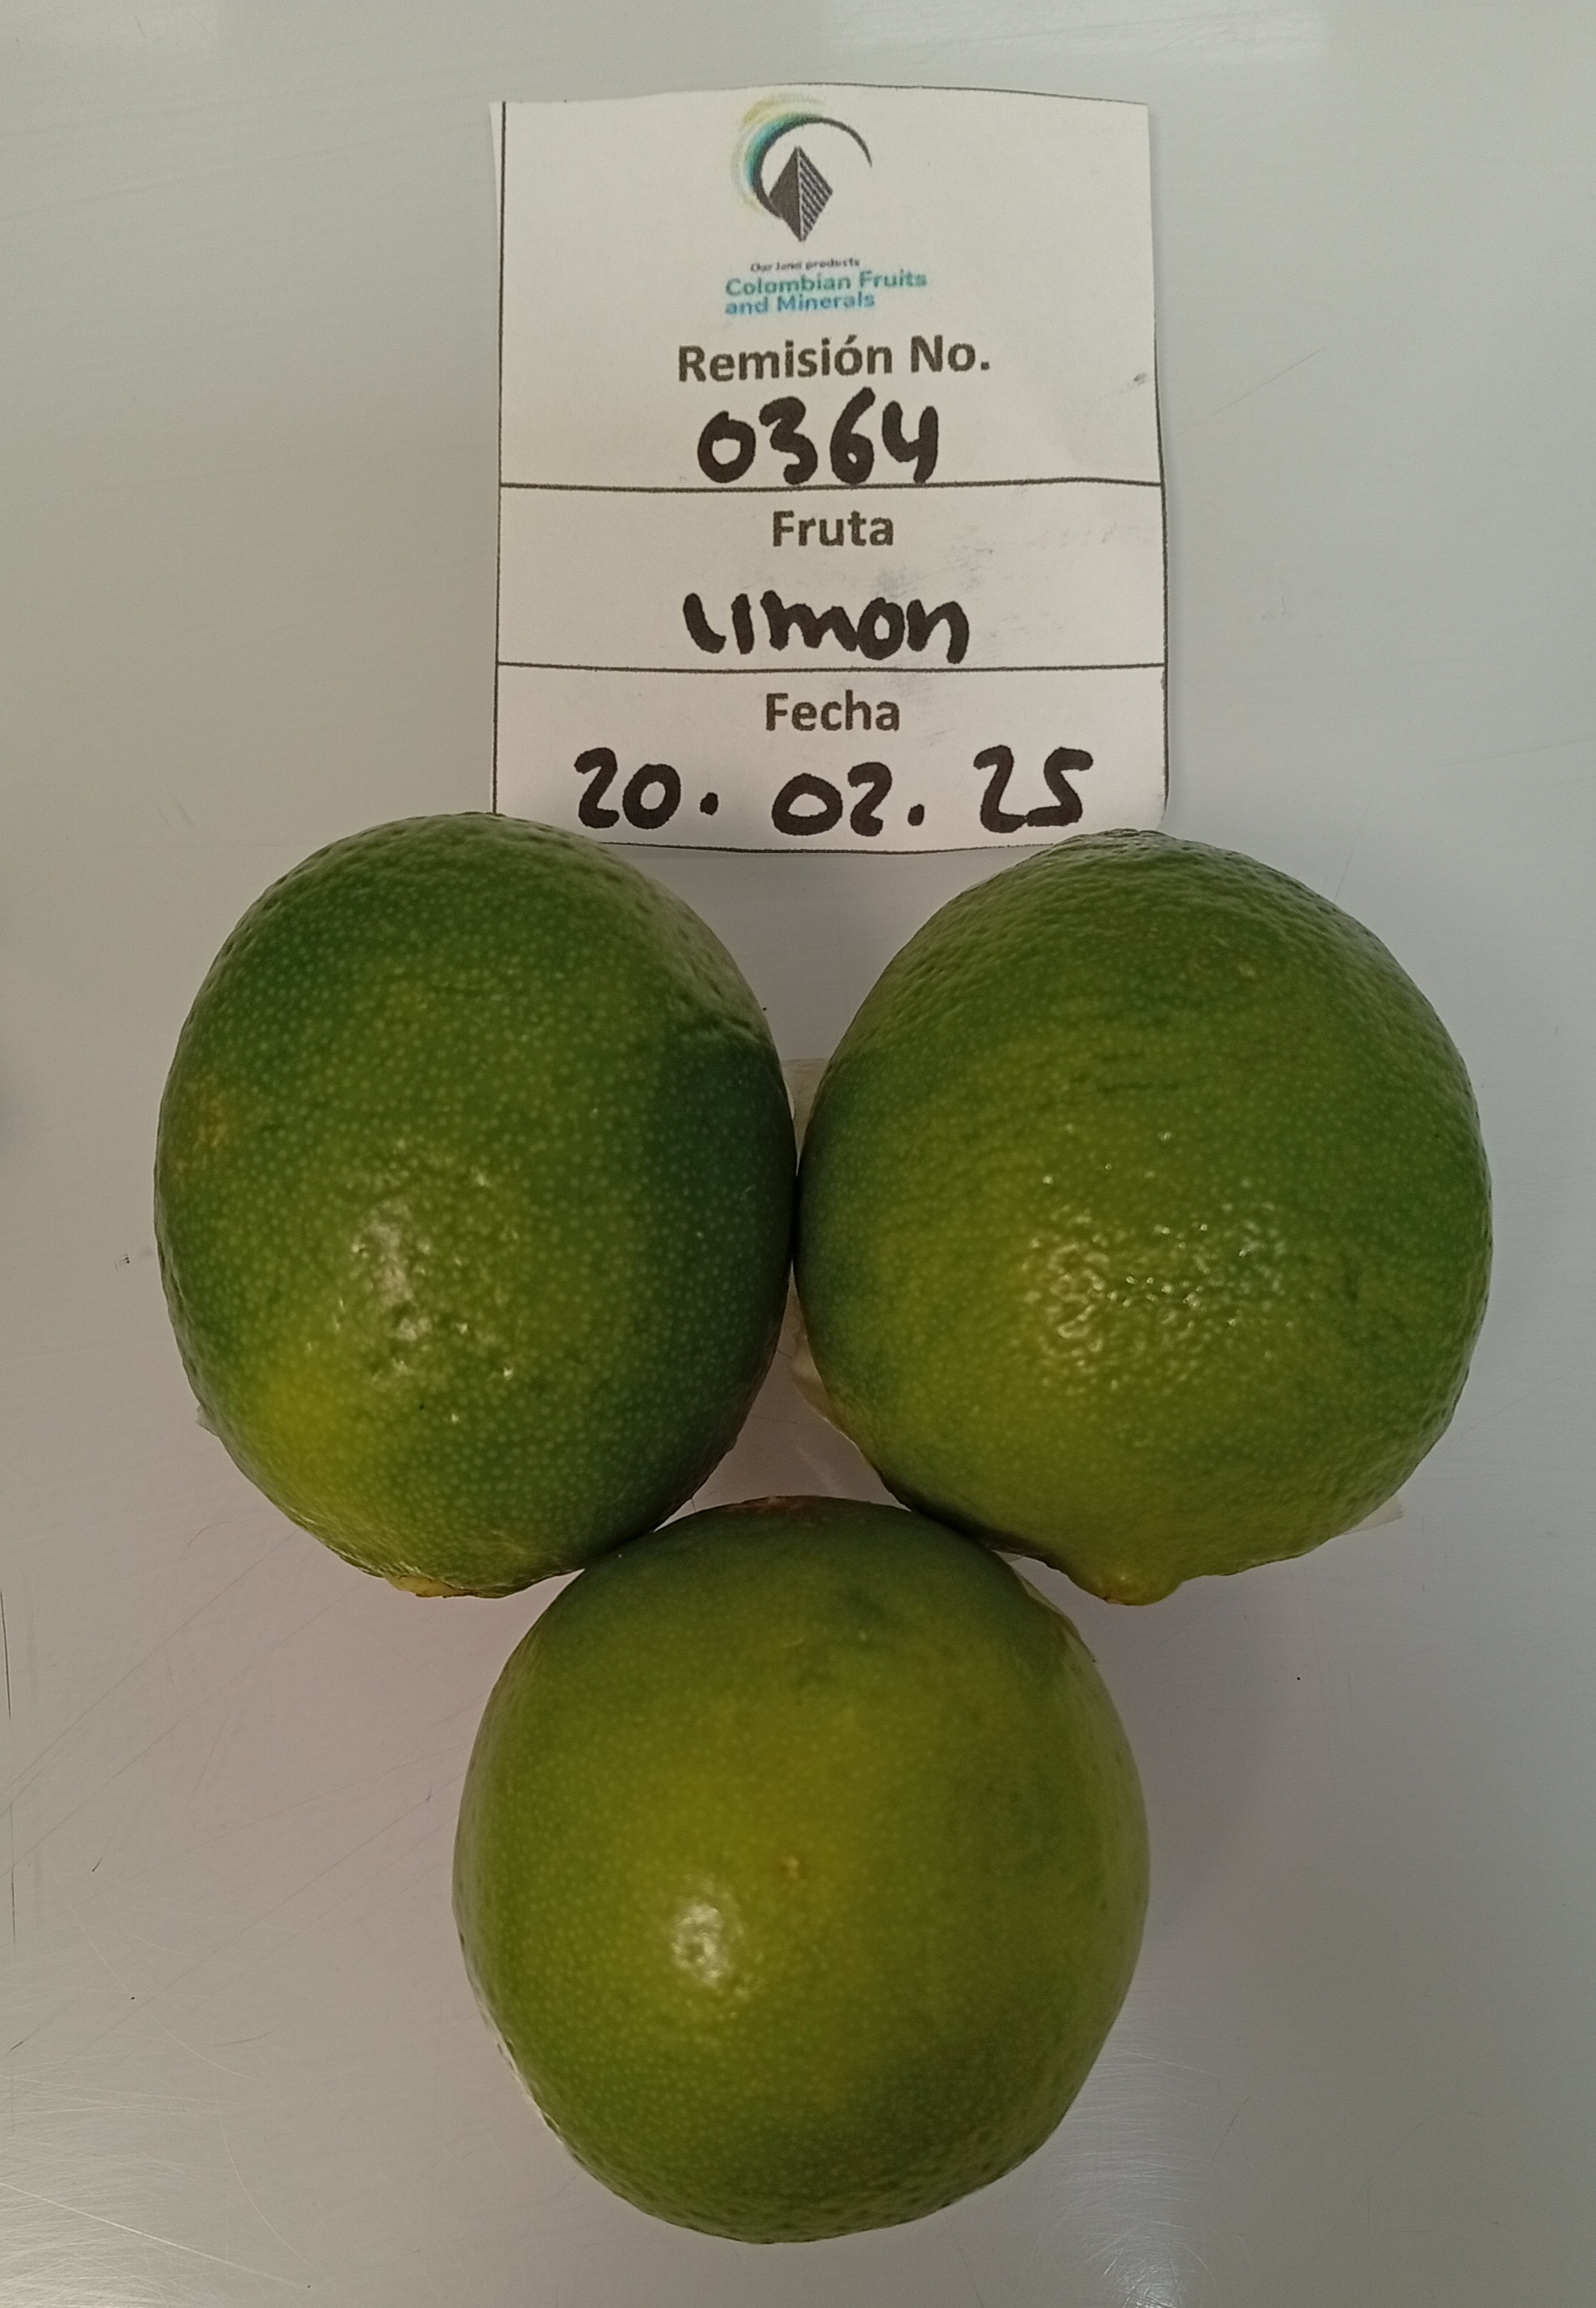 Our land products
Colombian Fruits
and Minerals
Remisión No.
0364
Fruta
Limon
Fecha
20. 02. 25